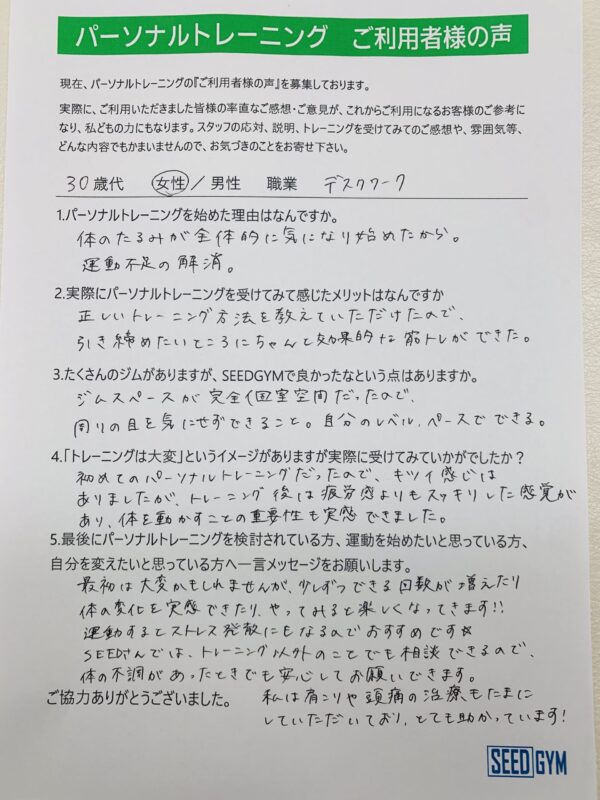 パーソナルトレーニング ご利用者様の声
現在、パーソナルトレーニングの『ご利用者様の声』を募集しております。
実際に、ご利用いただきました皆様の率直なご感想・ご意見が、これからご利用になるお客様のご参考に
なり、私どもの力にもなります。スタッフの応対、説明、トレーニングを受けてみてのご感想や、雰囲気等、
どんな内容でもかまいませんので、お気づきのことをお寄せ下さい。
30歳代 女性／男性 職業 デスクワーク
1.パーソナルトレーニングを始めた理由はなんですか。
体のたるみが全体的に気になり始めたから。
運動不足の解消。
2.実際にパーソナルトレーニングを受けてみて感じたメリットはなんですか
正しいトレーニング方法を教えていただけたので、
引き締めたいところにちゃんと効果的な筋トレができた。
3.たくさんのジムがありますが、SEEDGYMで良かったなという点はありますか。
ジムスペースが完全個室空間だったので、
周りの目を気にせずできること。自分のレベル、ペースでできる。
4.「トレーニングは大変」というイメージがありますが実際に受けてみていかがでしたか？
初めてのパーソナルトレーニングだったので、キツイ感じは
ありましたが、トレーニング後は疲労感よりもスッキリした感覚が
あり、体を動かすことの重要性も実感できました。
5.最後にパーソナルトレーニングを検討されている方、運動を始めたいと思っている方、
自分を変えたいと思っている方へ一言メッセージをお願いします。
最初は大変かもしれませんが、少しずつできる回数が増えたり
体の変化を実感できたり、やってみると楽しくなってきます!!
運動するとストレス発散にもなるのでおすすめです☆
SEEDさんでは、トレーニング以外のことでも相談できるので、
体の不調があったときでも安心してお願いできます。
ご協力ありがとうございました。 私は肩こりや頭痛の治療もたまに
していただいており、とても助かっています!
SEED GYM